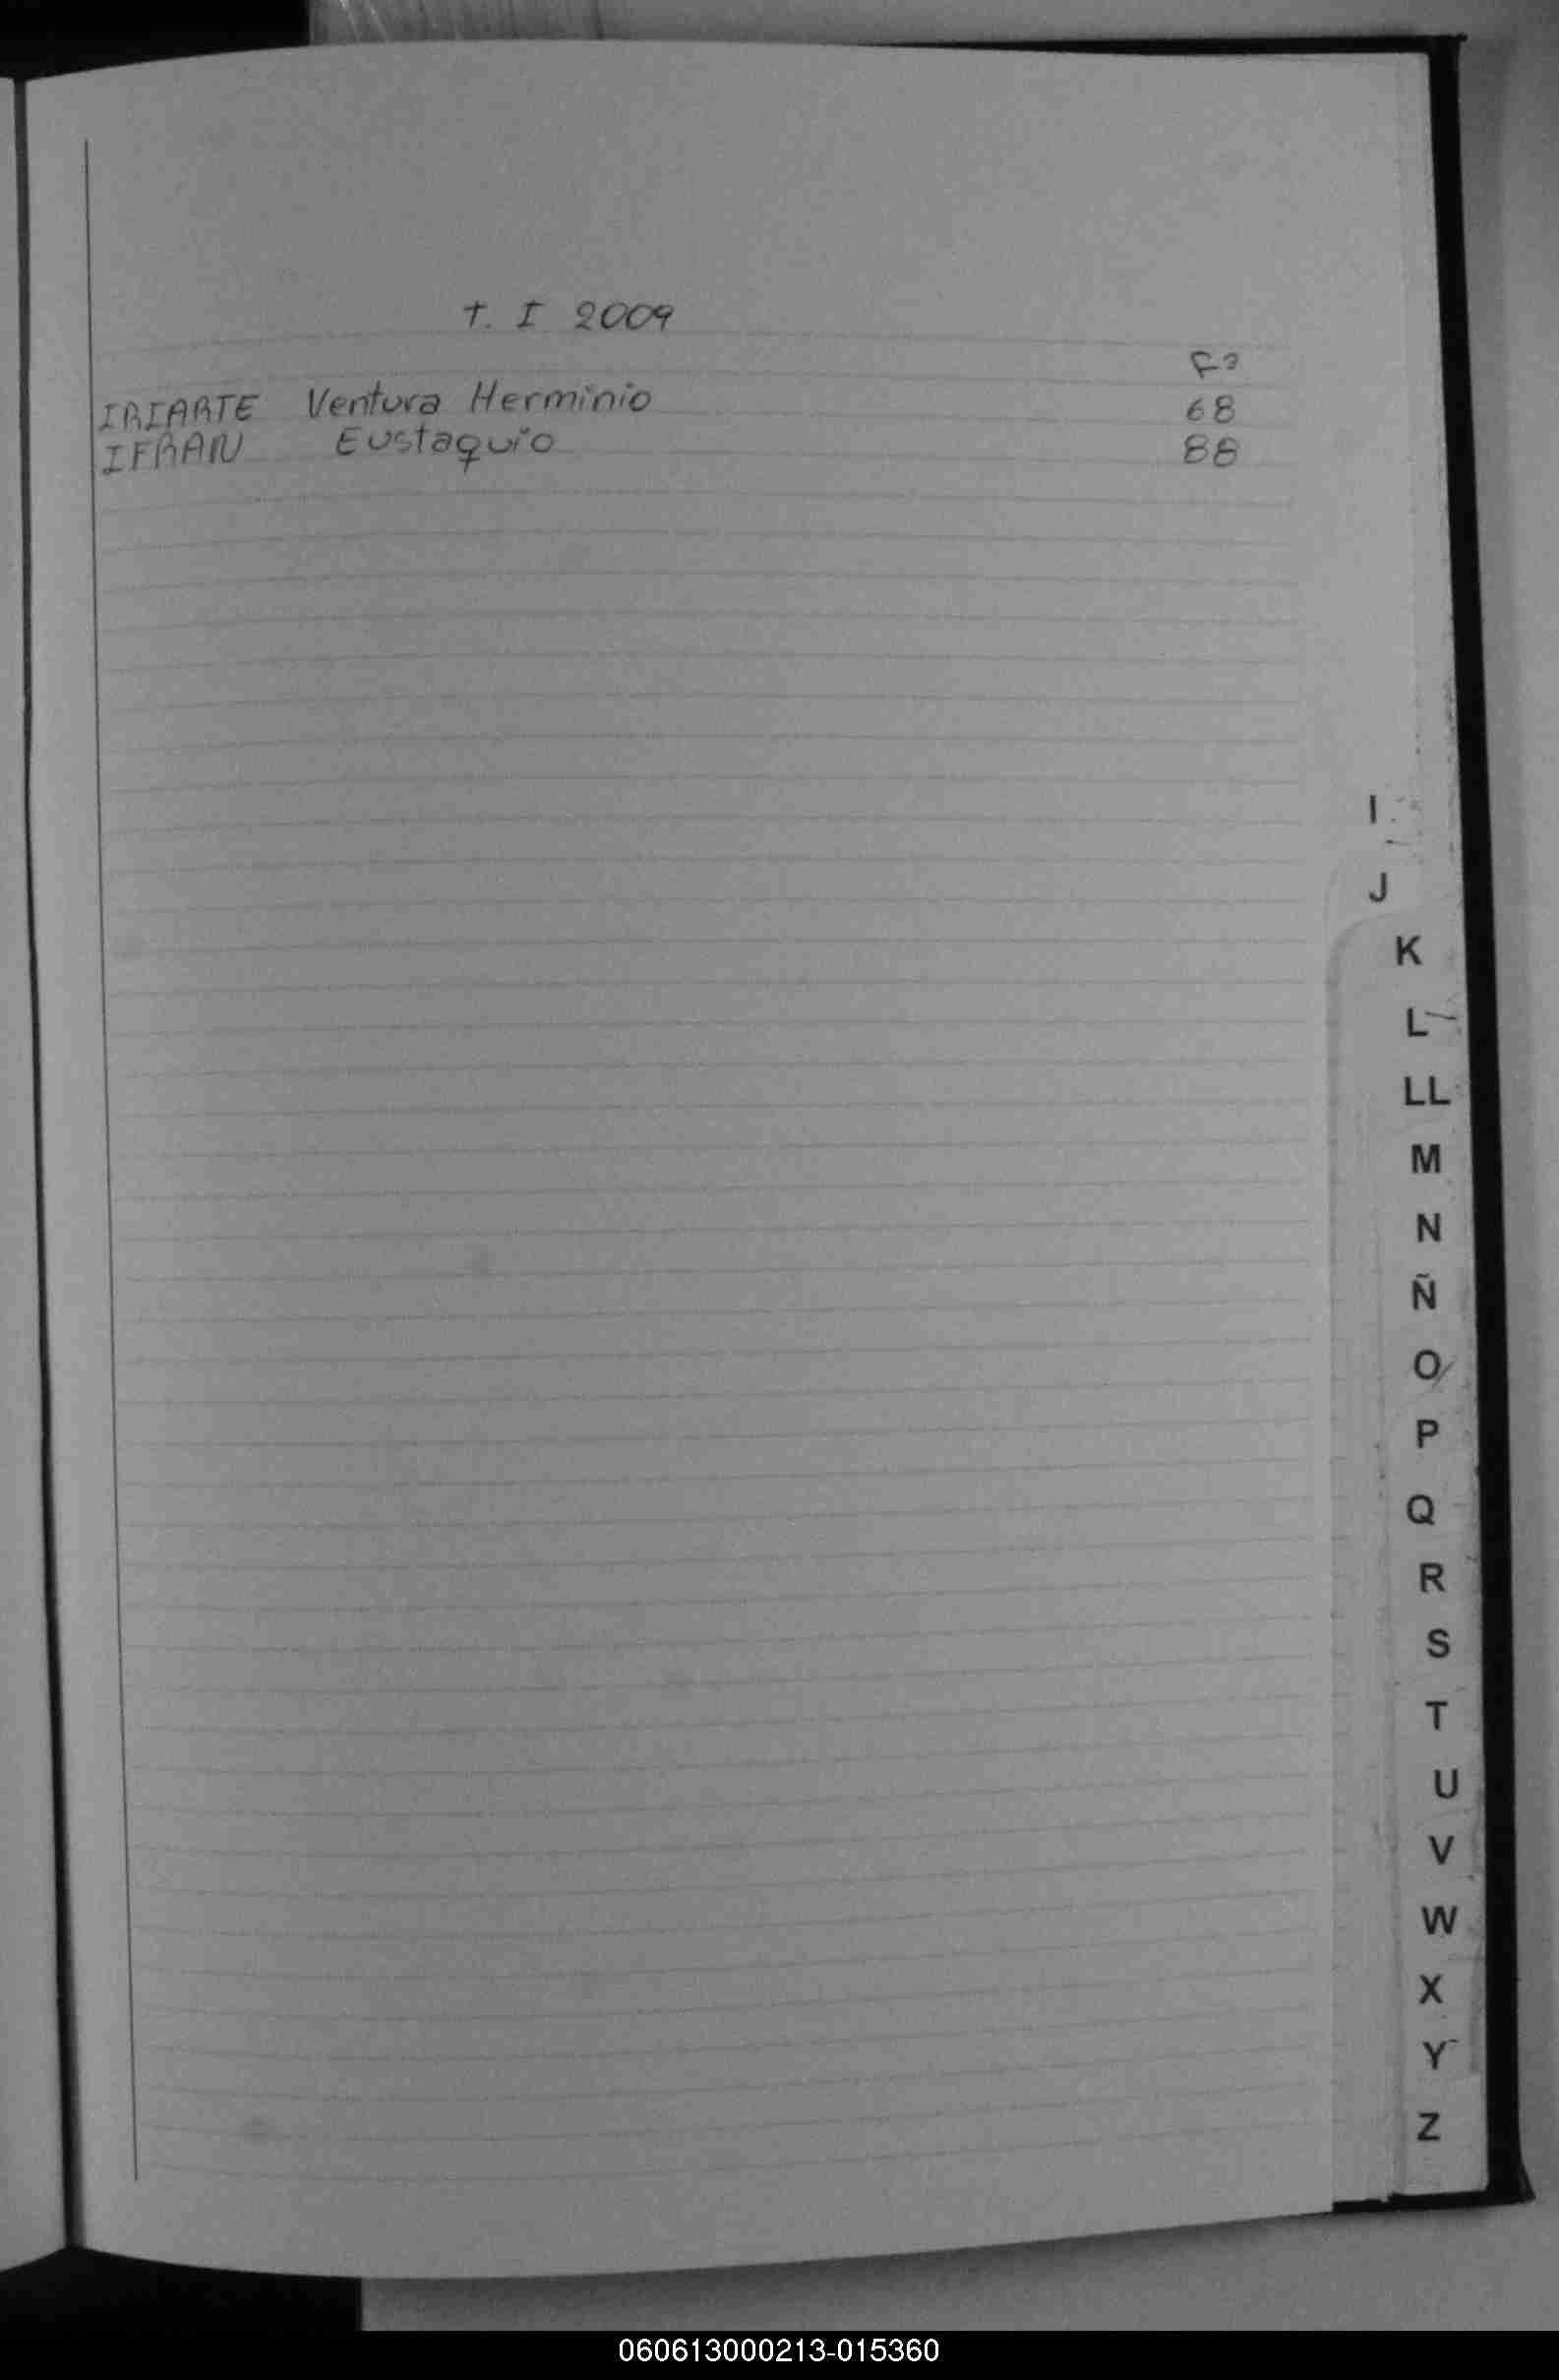 T. I 2009
Fº
IRIARTE Ventura Herminio 68
IFRAN Eustaquio 88
I
J
K
L
LL
M
N
Ñ
O
P
Q
R
S
T
U
V
W
X
Y
Z
060613000213-015360